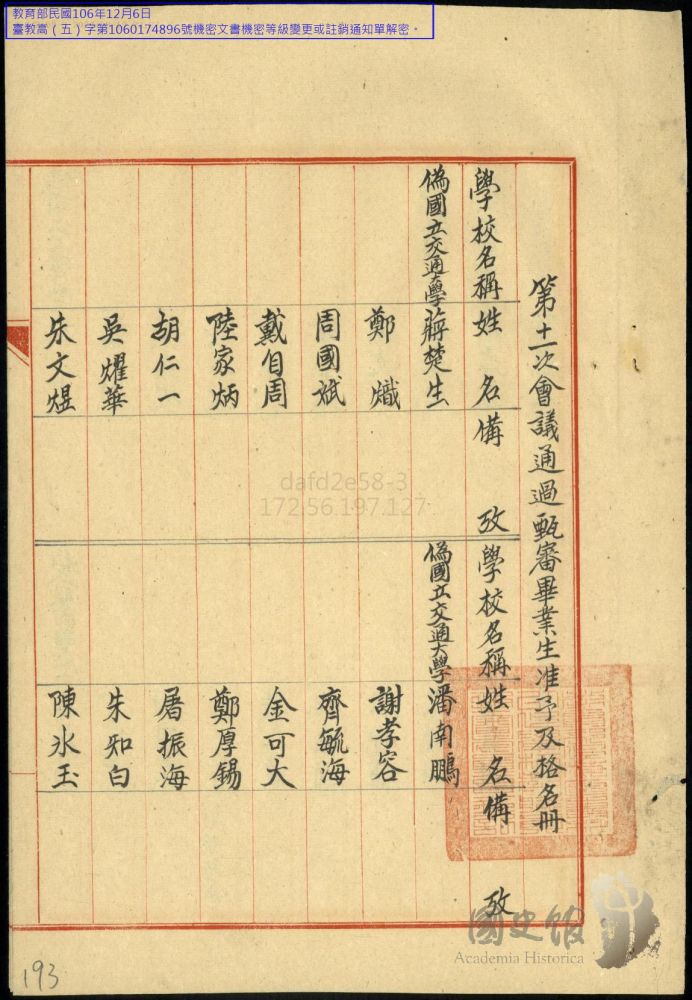 教育部民國106年12月6日
臺教高（五）字第1060174896號機密文書機密等級變更或註銷通知單解密。
第十一次會議通過甄審畢業生准予及格名冊
學校名稱 姓名 備攷 學校名稱 姓名 備攷
偽國立交通大學 蔣楚生 偽國立交通大學 潘南鵬
鄭熾 謝孝容
周國斌 齊毓海
戴自周 金可大
陸家炳 鄭厚錫
胡仁一 屠振海
吳燿華 朱知白
朱文煜 陳氷玉
dafd2e58-3
172.56.197.127
國史館
Academia Historica
193